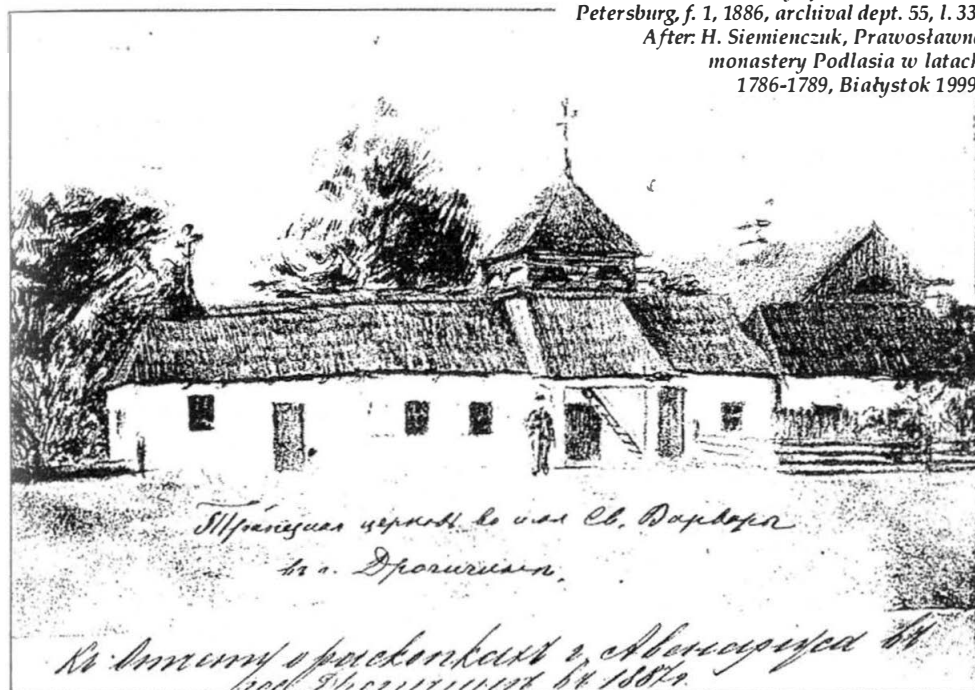 Petersburg, f. 1, 1886, archival dept. 55, l. 33
After: H. Siemienczuk, Prawosławne
monastery Podlasia w latach
1786-1789, Białystok 1999
церковь во имя Св. Варвары
въ г. Дрогичинѣ.
Къ отчету о раскопкахъ г. Авенаріуса въ
Дрогичинѣ въ 1887 г.